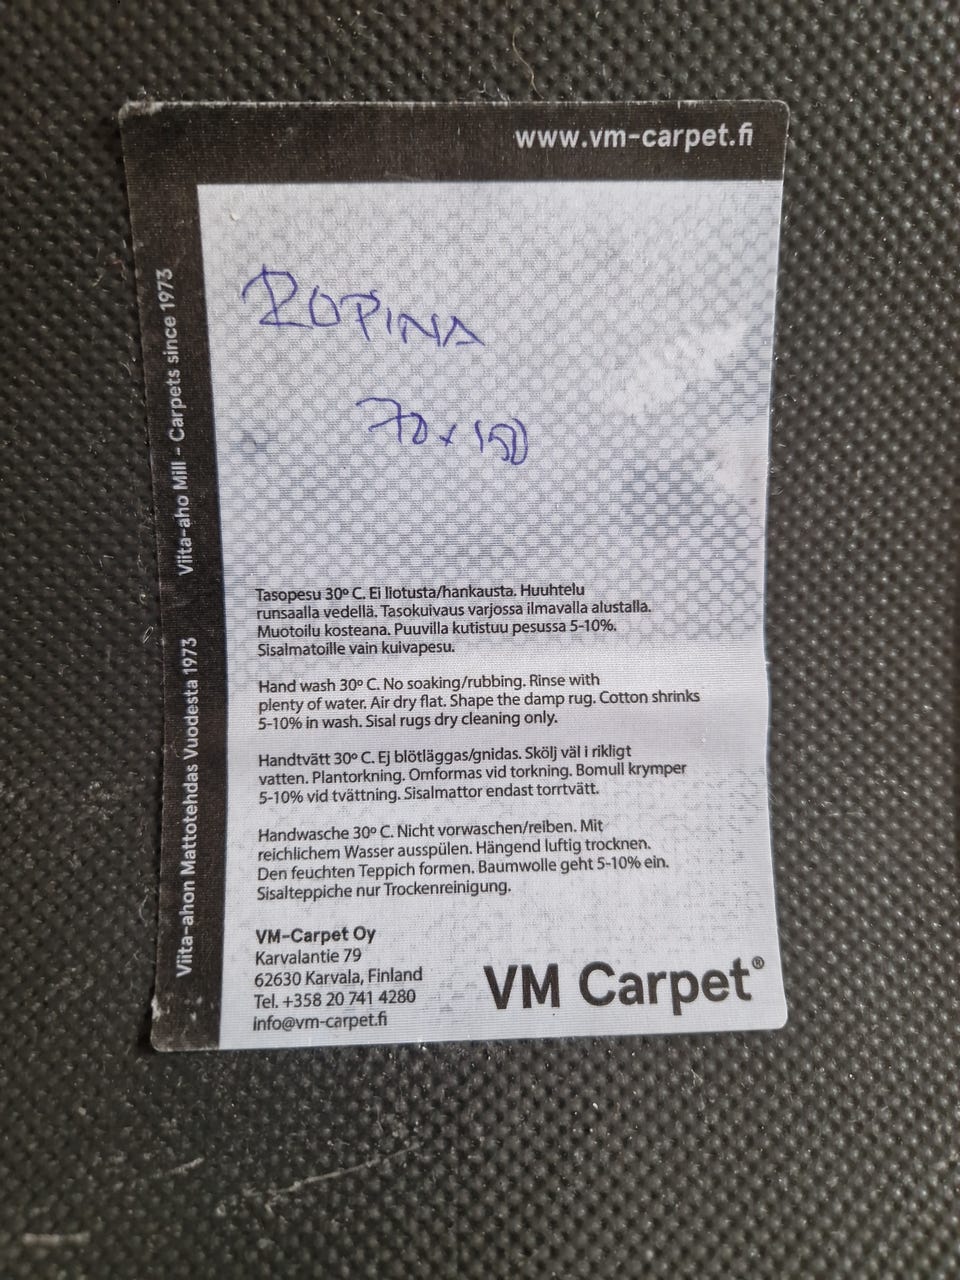 www.vm-carpet.fi
Viita-aho Mill - Carpets since 1973
Viita-ahon Mattotehdas Vuodesta 1973
ROPINA
70x150
Tasopesu 30º C. Ei liotusta/hankausta. Huuhtelu
runsaalla vedellä. Tasokuivaus varjossa ilmavalla alustalla.
Muotoilu kosteana. Puuvilla kutistuu pesussa 5-10%.
Sisalmatoille vain kuivapesu.
Hand wash 30º C. No soaking/rubbing. Rinse with
plenty of water. Air dry flat. Shape the damp rug. Cotton shrinks
5-10% in wash. Sisal rugs dry cleaning only.
Handtvätt 30º C. Ej blötläggas/gnidas. Skölj väl i rikligt
vatten. Plantorkning. Omformas vid torkning. Bomull krymper
5-10% vid tvättning. Sisalmattor endast torrtvätt.
Handwasche 30º C. Nicht vorwaschen/reiben. Mit
reichlichem Wasser ausspülen. Hängend luftig trocknen.
Den feuchten Teppich formen. Baumwolle geht 5-10% ein.
Sisalteppiche nur Trockenreinigung.
VM-Carpet Oy
Karvalantie 79
62630 Karvala, Finland
Tel. +358 20 741 4280
info@vm-carpet.fi
VM Carpet®